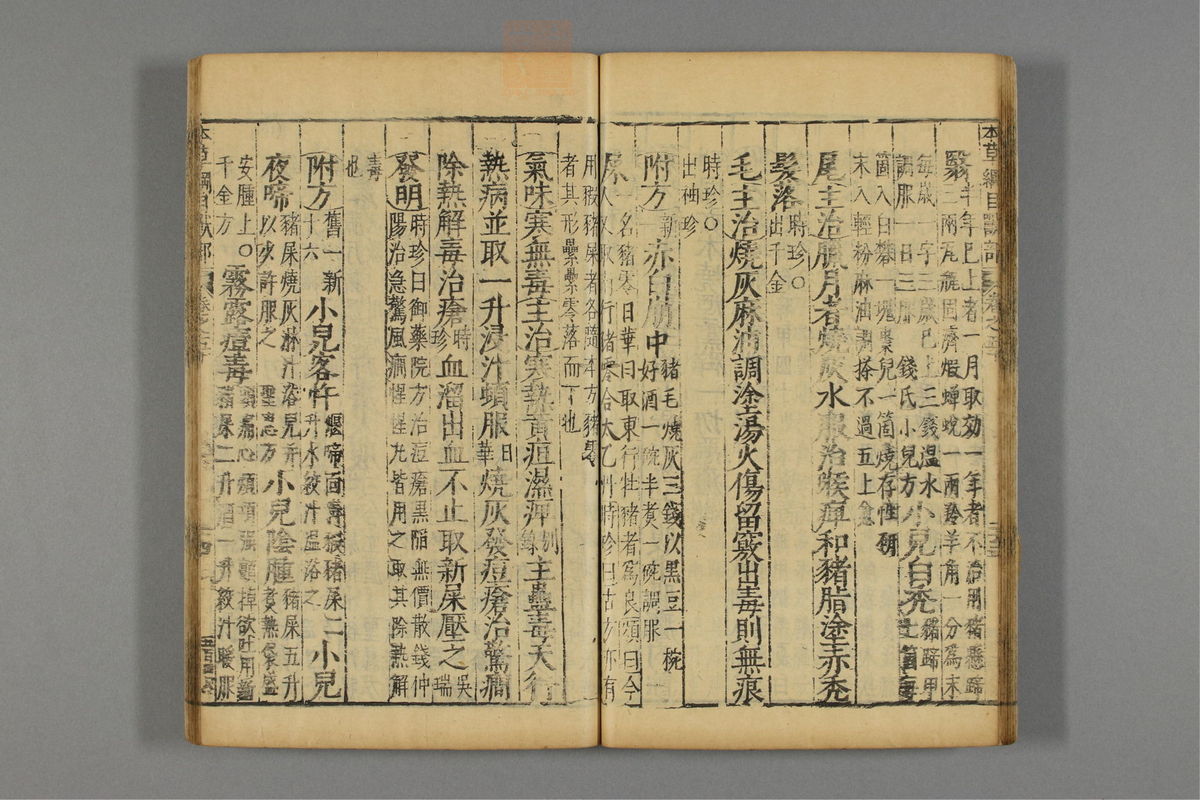 本草綱目獸部
翳半年已上者一月取效一年者不治用豬懸蹄
二兩瓦甁固濟煆蟬蛻一兩羚羊角一分爲末
每歲一字三歲已上三錢溫水
調服一日三服 錢氏小兒方 小兒白禿 豬蹄甲七箇每
箇入白礬一塊棗兒一箇燒存性硏
末入輕粉麻油調搽不過五上愈
尾主治臘月者燒灰水服治喉痺和豬脂塗赤禿
髮落 時珍○出千金
毛主治燒灰麻油調塗湯火傷留竅出毒則無痕
時珍○
出袖珍
附方 新一 赤白崩中 豬毛燒灰三錢以黑豆一椀
好酒一椀半煑一椀調服
屎 一名豬零日華曰取東行牡豬者爲良頌曰今
人又取南行豬零合太乙丹時珍曰古方亦有
用豭豬屎者各隨本方豬零
者其形纍纍零落而下也
氣味寒無毒主治寒熱黃疸濕痺 別錄 主蠱毒天行
熱病並取一升浸汁頓服 日華 燒灰發痘瘡治驚癎
除熱解毒治瘡 時珍 血溜出血不止取新屎壓之 吳瑞
發明 時珍曰御藥院方治痘瘡黑陷無價散錢仲
陽治急驚風癎惺惺丸皆用之取其除熱解
毒
也
附方 舊一新十六 小兒客忤 偃啼面靑豭豬屎二升水絞汁溫浴之 小兒
夜啼 豬屎燒灰淋汁浴兒幷以少許服之 聖惠方 小兒陰腫 豬屎五升煑熱袋盛
安腫上○
千金方 霧露瘴毒 心煩頭强顫掉欲吐用新
豬屎二升酒一升絞汁暖服
本草綱目獸部